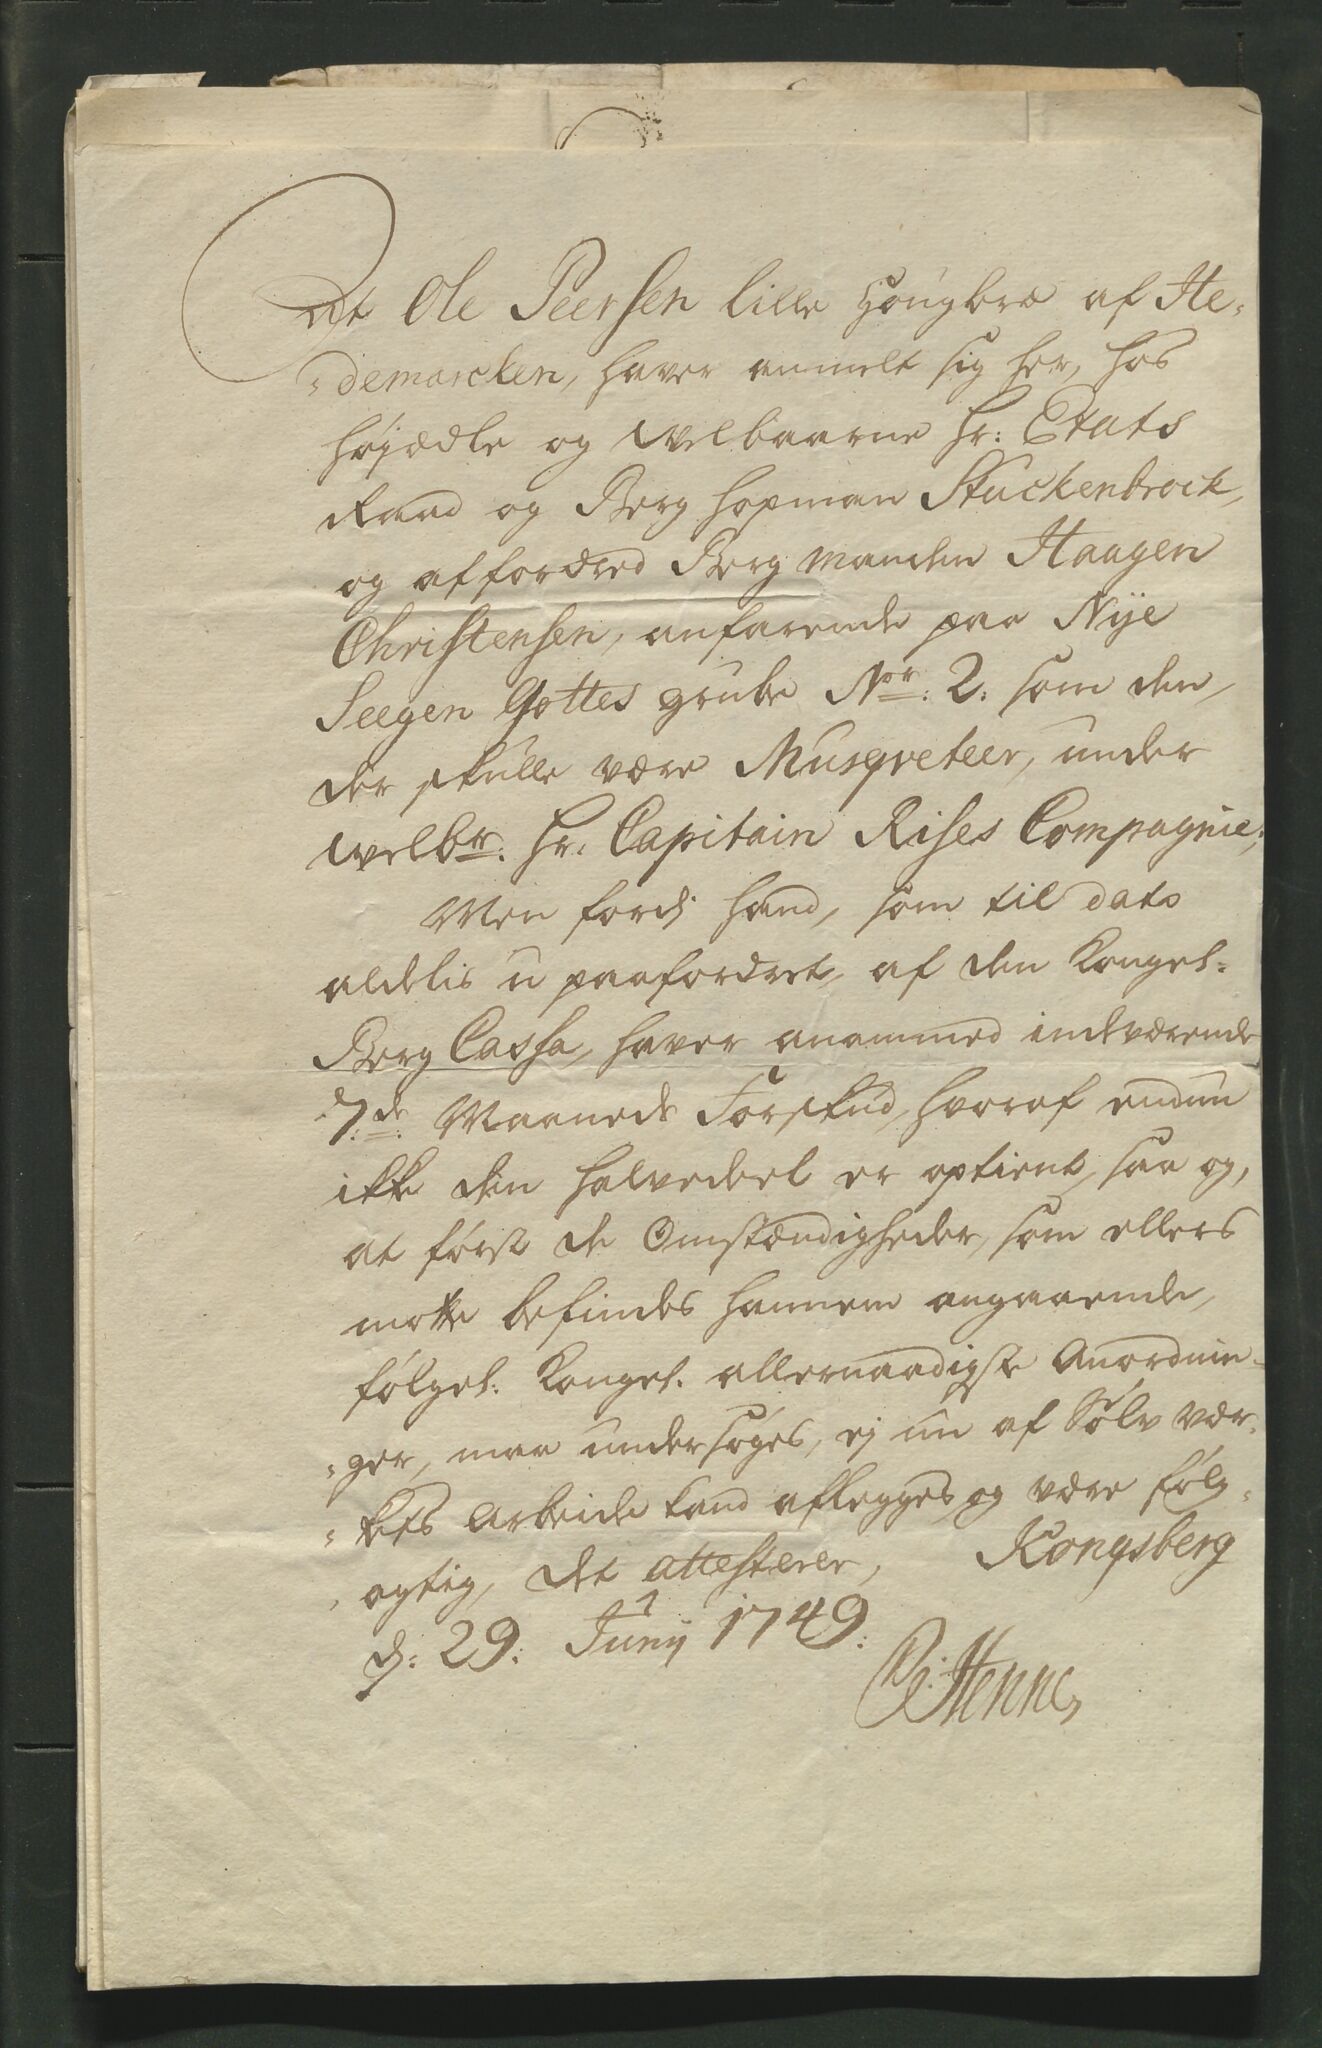 At Ole Peersen lille Hougbræ af He-
-demarcken, haver anmelt sig her, hos
højædle og Welbaarne Hr: Etats
Raad og Berg Hopman Stuckenbrock,
og affordred Berg Manden Haagen
Christensen, anfarende paa Nye
Seegen Gottes grube Nor: 2: som den,
der skulle være Musqveteer, under
Welbr: Hr: Capitain Rises Compagnie;
Men fordj hand, som til dato
aldelis u paafordret, af den Kongel:
Berg Cassa, haver anammed indeværende
7:de Maaneds Forskud, hvoraf endnu
ikke den halvedeel er optient, saa og,
at først de Omstændigheder, som ellers
motte befindes hannem angaaende,
følgel: Kongel. allernaadigste Anordnin-
-ger, maa undersøges, ej nu af Sølv Vær-
-kets Arbeide kand aflegges og være følg-
-agtig, det attesterer, Kongsberg
d: 29: Junij 1749:
Henne,